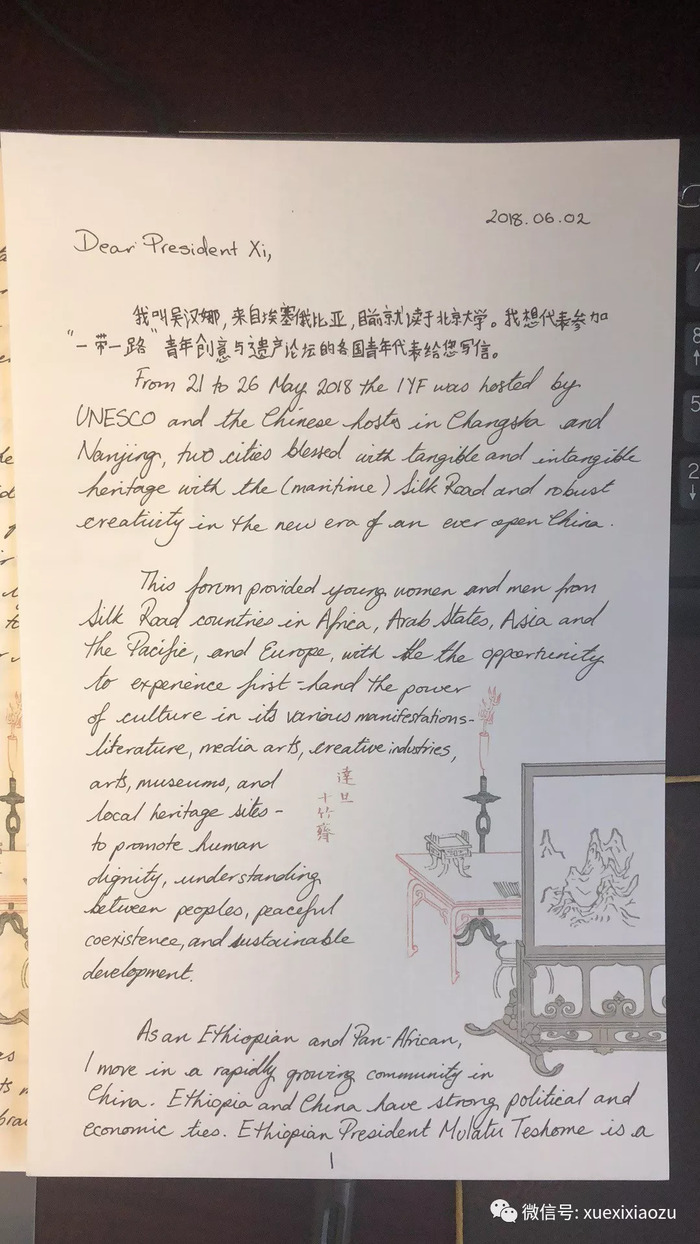 2018.06.02
Dear President Xi,
我叫吴汉娜,来自埃塞俄比亚,目前就读于北京大学。我想代表参加
"一带一路"青年创意与遗产论坛的各国青年代表给您写信。
From 21 to 26 May 2018 the IYF was hosted by
UNESCO and the Chinese hosts in Changsha and
Nanjing, two cities blessed with tangible and intangible
heritage with the (maritime) Silk Road and robust
creativity in the new era of an ever open China.
This forum provided young women and men from
Silk Road countries in Africa, Arab States, Asia and
the Pacific, and Europe, with the the opportunity
to experience first-hand the power
of culture in its various manifestations-
literature, media arts, creative industries,
arts, museums, and
local heritage sites -
to promote human
dignity, understanding
between peoples, peaceful
coexistence, and sustainable
development.
達旦
十竹齋
As an Ethiopian and Pan-African,
I move in a rapidly growing community in
China. Ethiopia and China have strong political and
economic ties. Ethiopian President Mulatu Teshome is a
1
微信号: xuexixiaozu